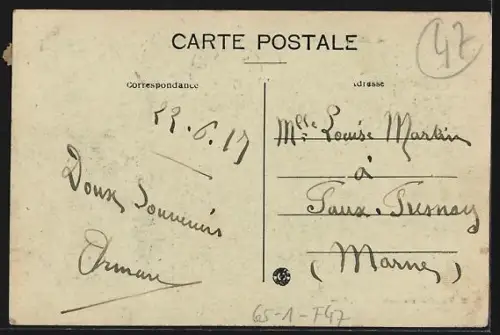 47
CARTE POSTALE
Correspondance
Adresse
22.6.17
Mlle Louise Martin
à
Faux-Fresnay
(Marne)
Doux Souvenirs
65-1-F47